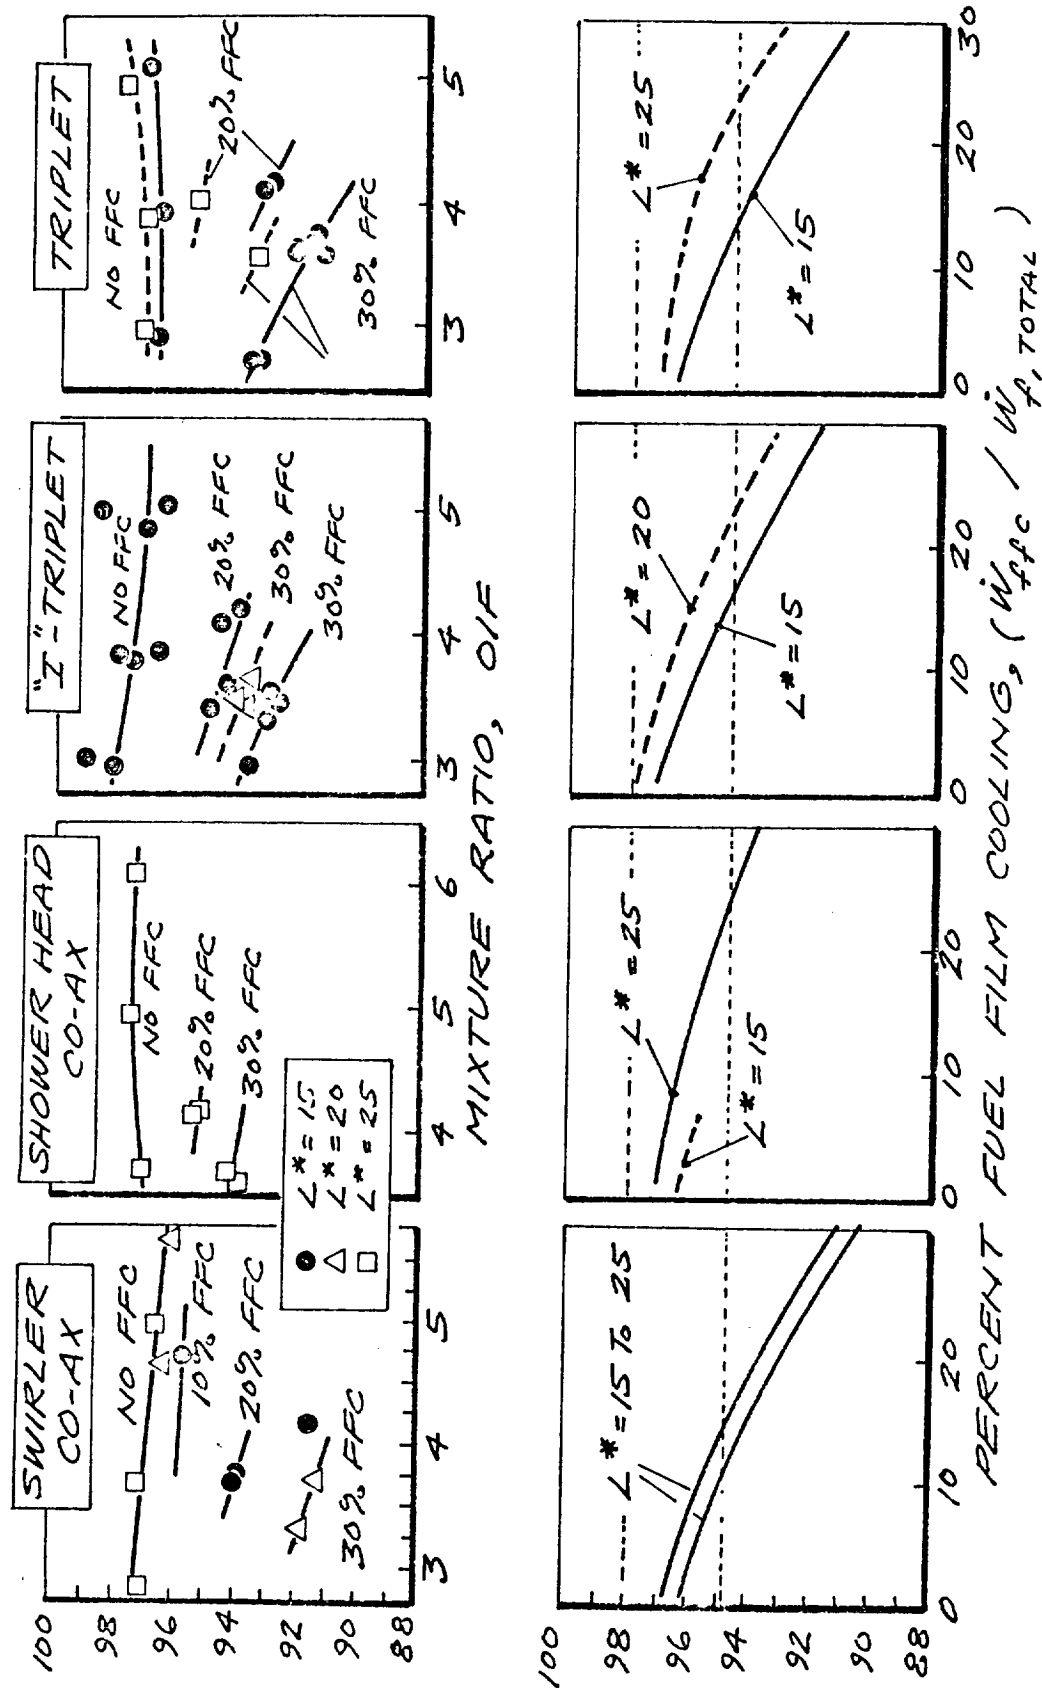 SWIRLER
CO-AX
100
98
96
94
92
90
88
NO FFC
10% FFC
20% FFC
30% FFC
3
4
5
SHOWER HEAD
CO-AX
NO FFC
20% FFC
30% FFC
4
5
6
L* = 15
L* = 20
L* = 25
"I"-TRIPLET
NO FFC
20% FFC
30% FFC
30% FFC
3
4
5
TRIPLET
NO FFC
20% FFC
30% FFC
3
4
5
MIXTURE RATIO, O/F
100
98
96
94
92
90
88
L* = 15 TO 25
0
10
20
L* = 25
L* = 15
0
10
20
L* = 20
L* = 15
0
10
20
L* = 25
L* = 15
0
10
20
30
PERCENT FUEL FILM COOLING, (Ẇffc / Ẇf, TOTAL)